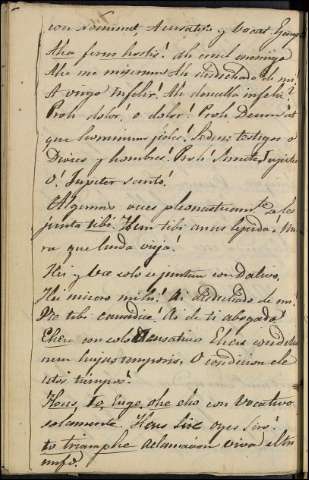 con nominat, Acusativo y Vocat.
Aha ferus hostis! ah cruel enemigo
Ahe me miserum Ah desdichado de mi!
A virgo infelix! Ah doncella infeliz!
Proh dolor! o dolor! Proh Deum at
que hominum fides! Sedme testigos o
Dioses y hombres! Proh! Sancte Jupiter
O! Jupiter santo!
Algunas veces se
junta tibi. Hem tibi anus lepida. Mi
ra que linda vieja!
Hei y Væ solo se juntan con Dativo.
Hei misero mihi! Ai desdichado de mi!
Væ tibi causidice! Ai de ti abogado!
Eheu con solo Acusativo Eheu condicio
nem hujus temporis. O condicion de
estos tiempos!
Heus, Io, Euge, ohe eho con Vocativo
solamente. Heus Sire oyes Siro!
Io triumphe aclamacion viva el tri
unfo.